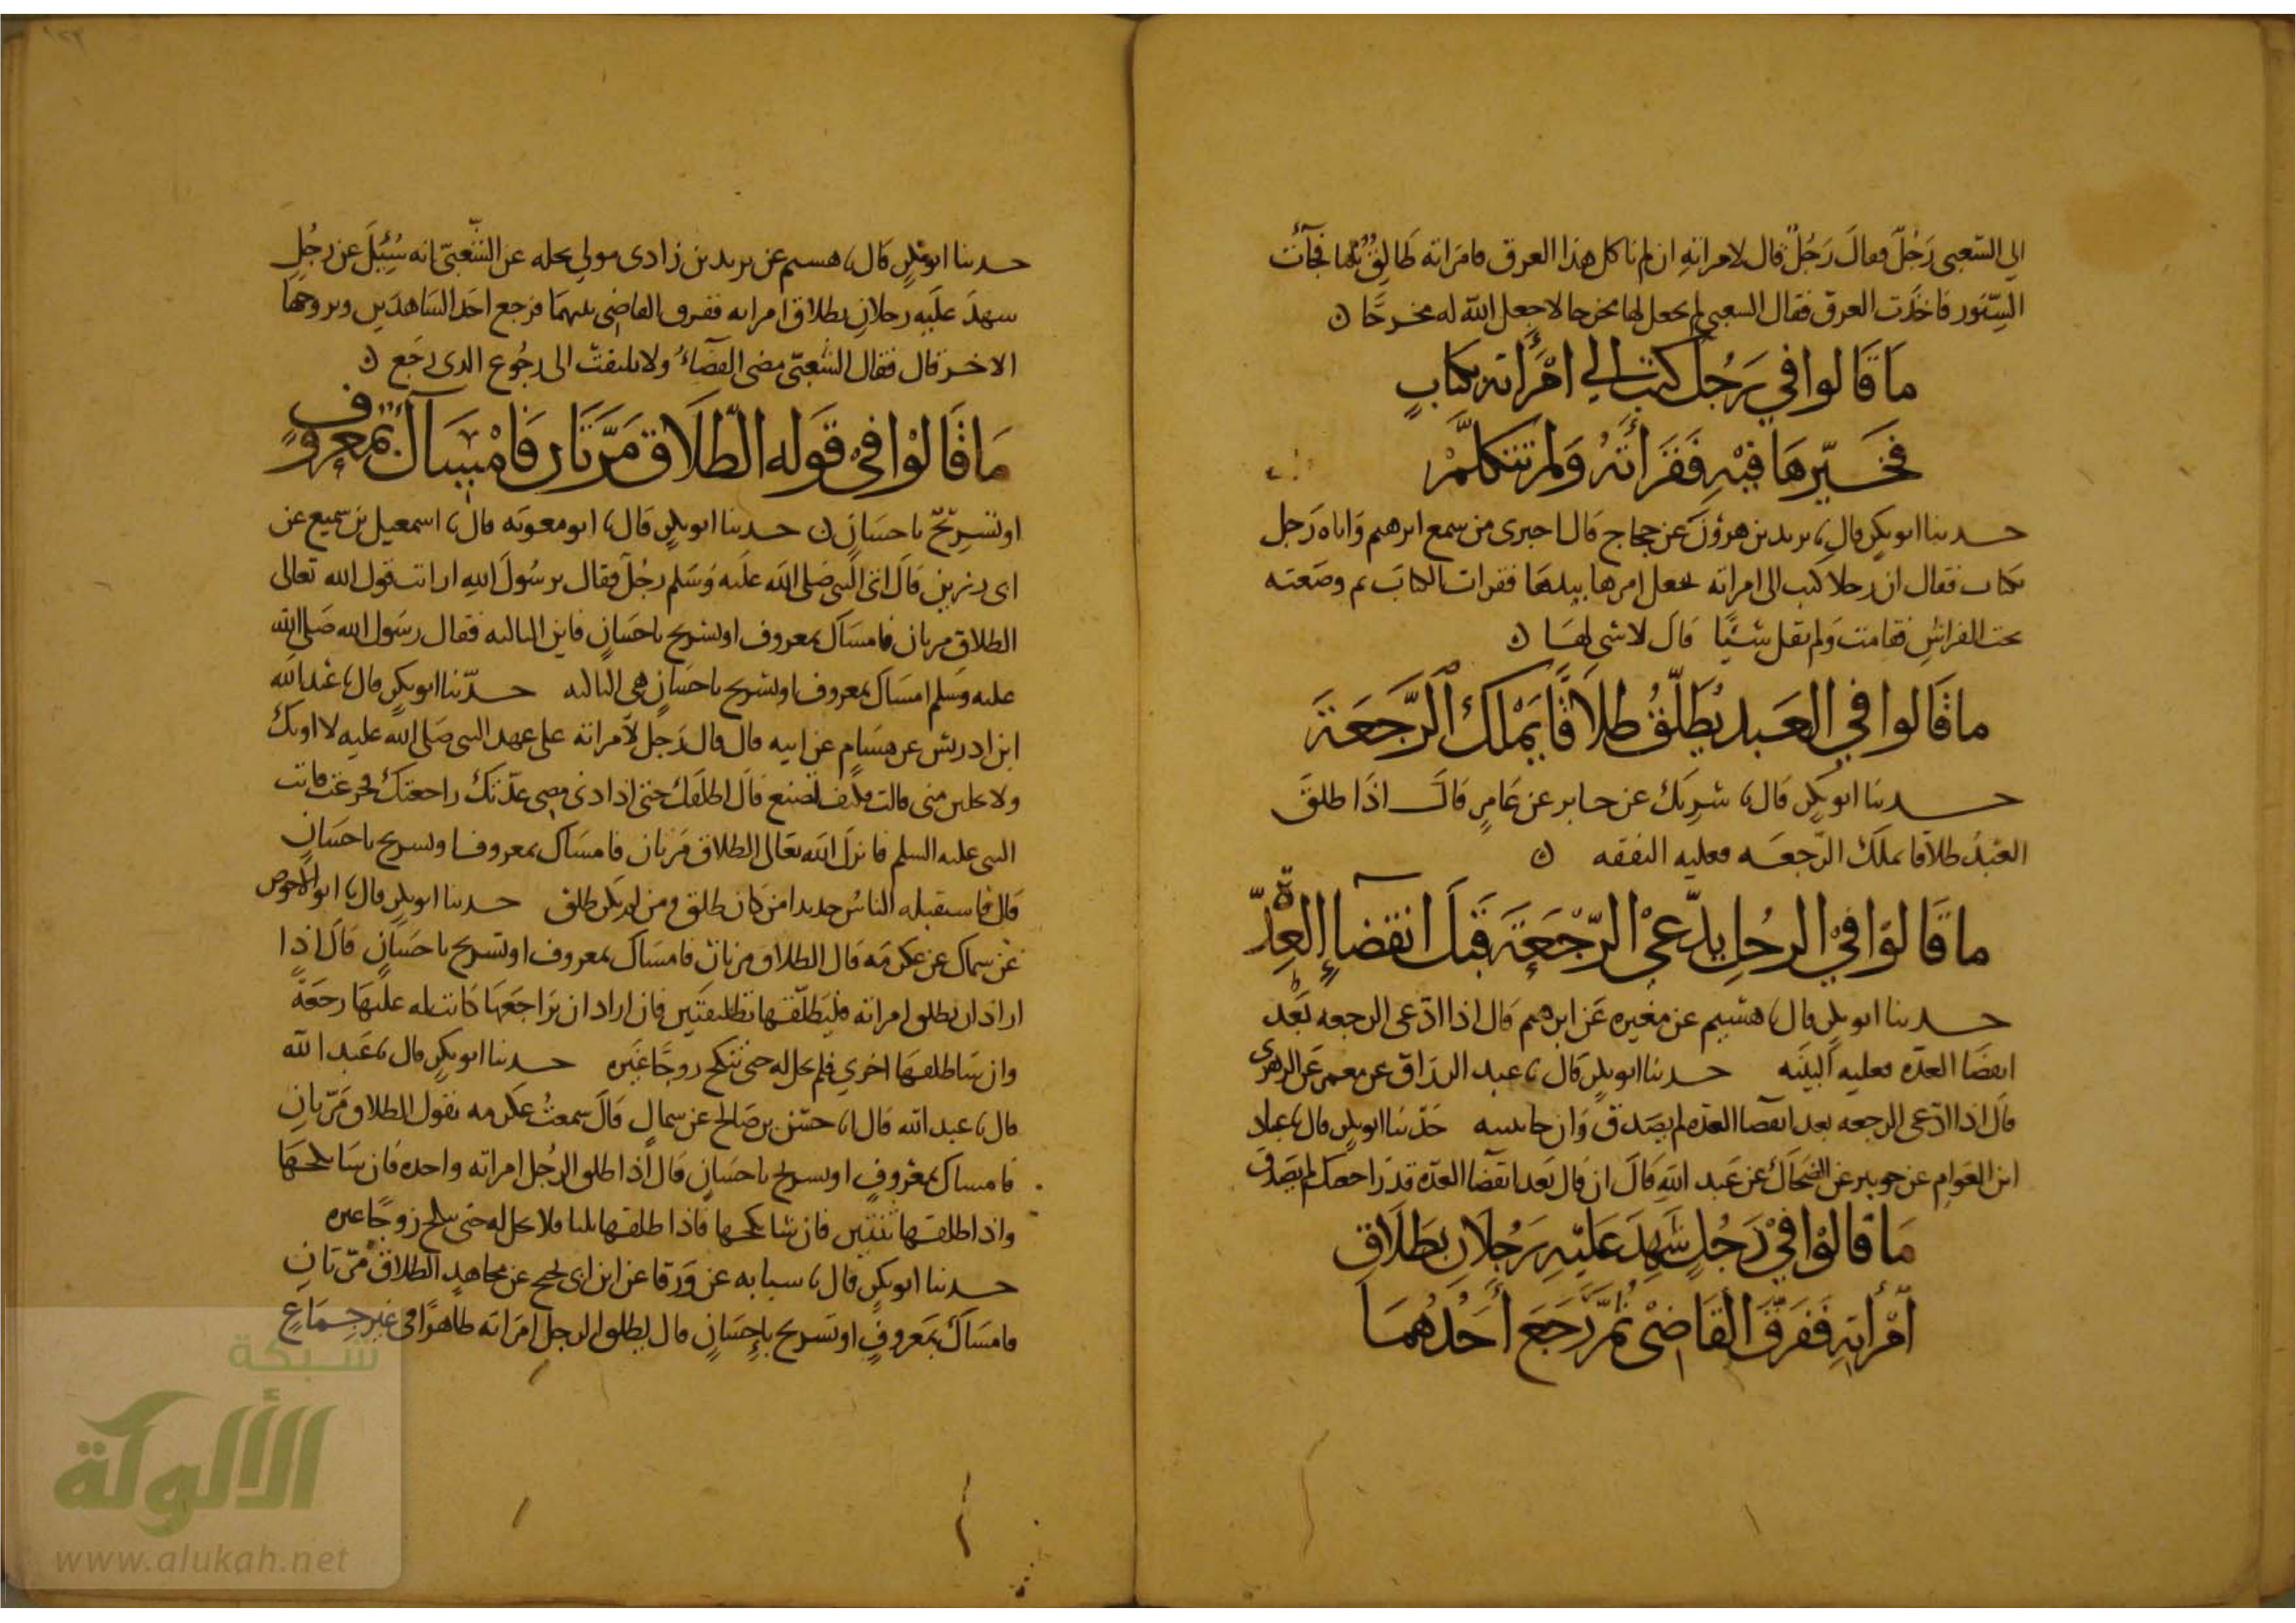 الي الشعبي رَجُلٌ فقالَ رَجُلٌ قال لامراته ان لم تاكل هذا العرق فامَراته طَالِقٌ ثلثا فجآءت
السِّنور فاخذت العرق فقال الشعبي لم يجعل لها مخرجا لا جعل الله له مخرجًا
مَا قَالوا في رَجُل كتبَ الي امْرَأته بكتابٍ
فخَيّرهَا فيْهِ فَقَرأَتْهُ وَلم تتكلّمْ
حدثنا ابو بكرٍ قال نا يزيد بن هرؤنَ عن حجاج قال اخبرني من سمع ابرهيم وَاتاه رَجل
بكتاب فقال ان رجلا كتب الى امراته فجعل امرها بيدهَا فقرات الكتابَ ثم وضَعته
تحت الفراشِ فقامت وَلم تقل شَيْئًا قَالَ لا شى لهَا
ما قَالوا في العَبد يُطَلّقُ طلاَقًا يَمْلك الرَّجعَةَ
حدثنا ابو بكرٍ قال نا شرِيك عن جابر عن عَامرٍ قالَ اذَا طلقَ
العَبْدُ طلاَقا يملك الرّجعَه فعليه النفقه
ما قَالوْا فيْ الرجُلِ يدّعيْ الرّجْعَةَ قَبْلَ انقضاءِ العِدّة
حدثنا ابو بكرٍ قال نا هشيم عن مغيره عَن ابرهيم قال اذا ادّعى الرجعه بَعْد
انقضا العدّه فعليه البيّنه حدثنا ابو بكرٍ قال نا عبد الرزاق عن معمر عَن الزهرى
قال اذا ادّعى الرجعه بعد انقضا العدّه لم يصَدق وَان جا ببينه حَدّثنا ابو بكر قال نا عباد
ابن العَوام عن جويبر عن الضحاك عن عَبد اللهِ قَالَ ان قال بَعد انقضا العدّه قد رَاجعتك لم يصَدق
مَا قالوْا فيْ رَجُلٍ شَهِدَ عَليْهِ رَجُلاَنِ بطَلاَقِ
امْرأتِهِ فَفَرَّقَ القَاضىْ ثمّ رَجَعَ أَحَدُهُمَا
حدثنا ابو بكرٍ قال نا هشيم عن يزيد بن زادى مولي بجله عن الشّعبيّ انه سُئِلَ عن رجُلٍ
شهدَ علَيه رجلانِ بطلاق امراته ففرق القاضِى بينهمَا فرجع احَد الشاهدَين وتزوجهَا
الاخر قال فقال الشّعبيّ مضى القضَاءُ ولا يلتفت الى رجُوع الذى رجَع
مَا قَالوْا فيْ قَوله الطّلاَق مَرَّتَان فَامْسَاكٌ بمعروفٍ
او تَسْرِيْحٌ باحسَانٍ حدثنا ابو بكرٍ قال نا ابو معويَه قال نا اسمعيل بن سميع عن
ابى رزين قالَ اتى النبيّ صَلى الله علَيه وَسَلم رجُلٌ فقال يرسُولَ اللهِ ارايت قول الله تعالى
الطلاق مرتان فامسَاك بمعروف او تسريح باحسَانٍ فاين الثالثه فقال رسُول الله صَلى الله
عليه وسَلم امسَاك بمعروف او تسريح باحسَانٍ هي الثالثه حدّثنا ابو بكرٍ قال نا عَبد الله
ابن ادريسَ عن هشَام عن ابيه قال قال رَجلٌ لامراته على عهد النبى صَلى الله عليه لا اويك
ولا تحلين منى قالت فكيف تصنع قال اطلقك حتى اذا دنى مضى عدّتك راجعتك فجزعت فاتت
النبى عليه السلم فانزل الله تعالى الطلاق مَرتان فامسَاك بمعروف او تسريح باحسَانٍ
قال فاستقبله الناسُ جديدا من كان طلق ومن لم يكن طلق حدثنا ابو بكرٍ قال نا ابو الاحوص
عن سماك عن عكرمَه قال الطلاق مرتان فامسَاك بمعروف او تسريح باحسَانٍ قالَ اذا
اراد ان يطلق امراته فليطلّقها تطليقتَين فان اراد ان يرَاجعَهَا كانت له علَيهَا رجعَة
وان شا طلقهَا اخري فلم تحل له حتى تنكح زوجًا غَيره حدثنا ابو بكرٍ قال نا عَبد الله
قال نا عبد الله قال انا حسَن بن صَالح عن سماك قالَ سمعتُ عكرمه يقول الطلاق مَرّتانِ
فامساك بمعْروفٍ او تسريح باحسَانٍ قالَ اذا طلق الرجُل امراته واحده فان شا نكحهَا
واذا طلقها ثنتين فان شا نكحها فاذا طلقها ثلثا فلا تحل له حتى تنكح زوجًا غيره
حدثنا ابو بكرٍ قال نا شبابه عن وَرقا عن ابن ابى نجيح عن مجاهدٍ الطلاق مَرّتَانِ
فامسَاكٌ بمَعروفٍ او تسريح بإحسَانٍ قال يطلق الرجل امرَاته طاهرًا في غير جِمَاعٍ
شبكة
الألوكة
www.alukah.net